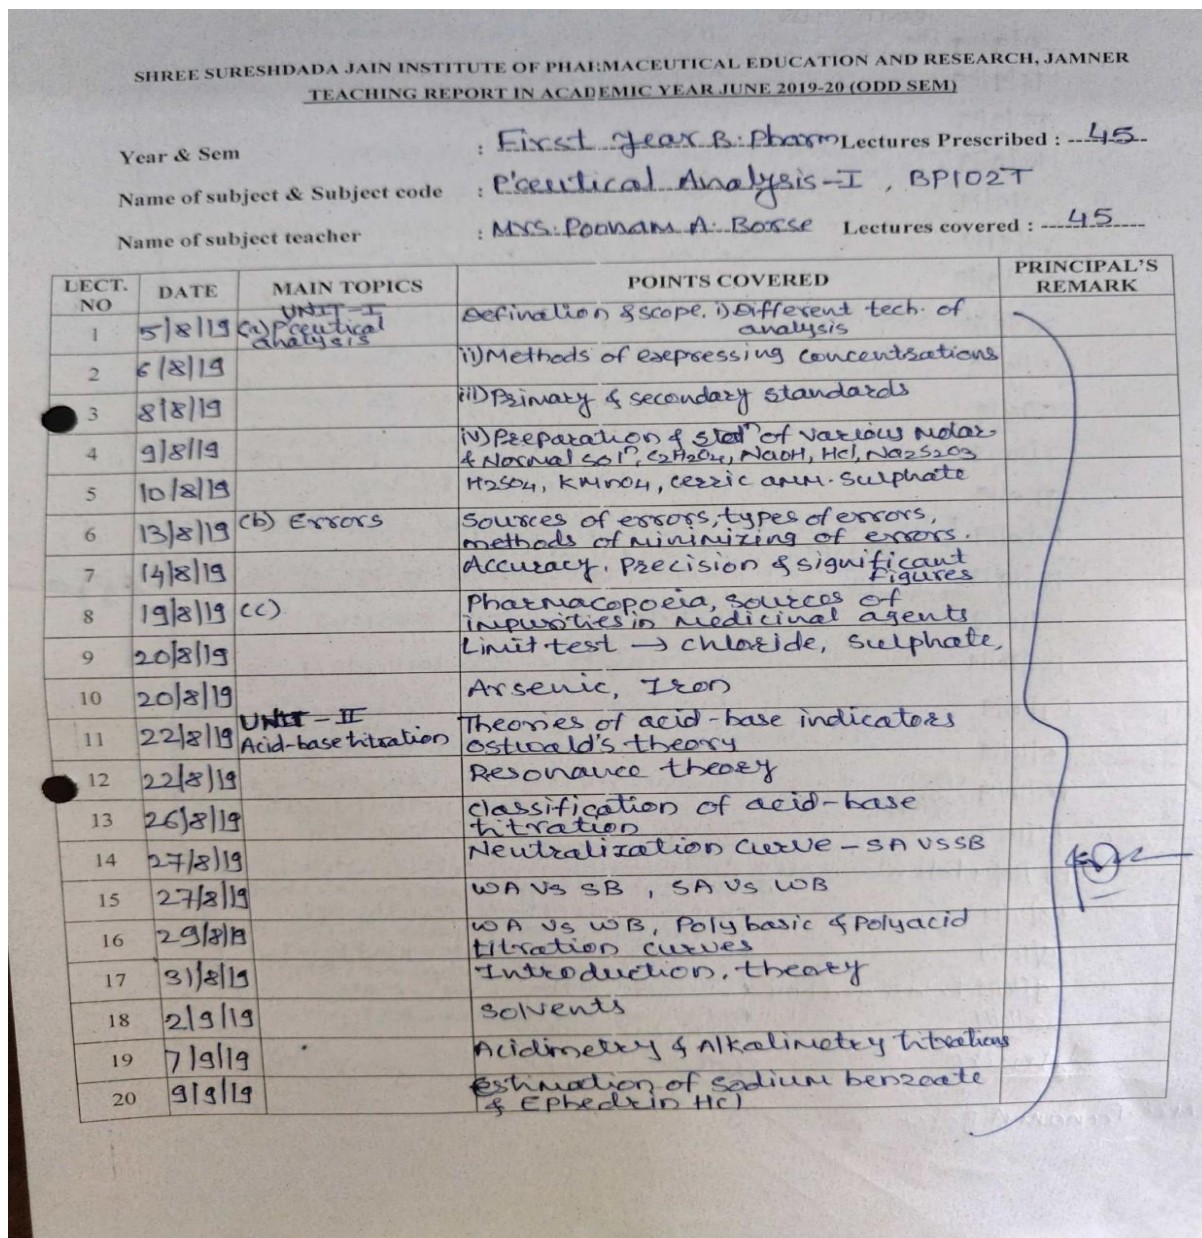 SHREE SURESHDADA JAIN INSTITUTE OF PHARMACEUTICAL EDUCATION AND RESEARCH, JAMNER
TEACHING REPORT IN ACADEMIC YEAR JUNE 2019-20 (ODD SEM)
Year & Sem : First Year B. Pharm Lectures Prescribed : 45
Name of subject & Subject code : P'ceutical Analysis-I , BP102T
Name of subject teacher : Mrs. Poonam A. Borse Lectures covered : 45
LECT. NO DATE MAIN TOPICS POINTS COVERED PRINCIPAL'S REMARK
UNIT-I
1 5/8/19 (a) Pceutical analysis Defination & scope. i) Different tech. of analysis
2 6/8/19 ii) Methods of expressing concentrations
3 8/8/19 iii) Primary & secondary standards
4 9/8/19 iv) Preparation & stdn of various Molar
& Normal soln, C2H2O4, NaOH, Hcl, Na2S2O3
5 10/8/19 H2SO4, KMnO4, cerric amm. sulphate
6 13/8/19 (b) Errors Sources of errors, types of errors,
methods of minimizing of errors.
7 14/8/19 Accuracy, Precision & significant
figures
8 19/8/19 (c) Pharmacopoeia, sources of
impurities in medicinal agents
9 20/8/19 Limit test → chloride, sulphate,
10 20/8/19 Arsenic, Iron
UNIT-II
11 22/8/19 Acid-base titration Theories of acid-base indicators
Ostwald's theory
12 22/8/19 Resonance theory
13 26/8/19 classification of acid-base
titration
14 27/8/19 Neutralization curve - SA VS SB
15 27/8/19 WA VS SB , SA VS WB
16 29/8/19 WA VS WB, Poly basic & Polyacid
titration curves
17 31/8/19 Introduction, theory
18 2/9/19 solvents
19 7/9/19 Acidimetry & Alkalimetry titrations
20 9/9/19 Estimation of sodium benzoate
& Ephedrin Hcl